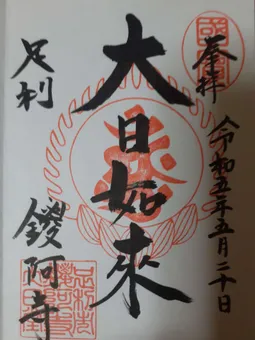 國寶
奉拝
令和五年五月二十日
大日如來
足利
鑁阿寺